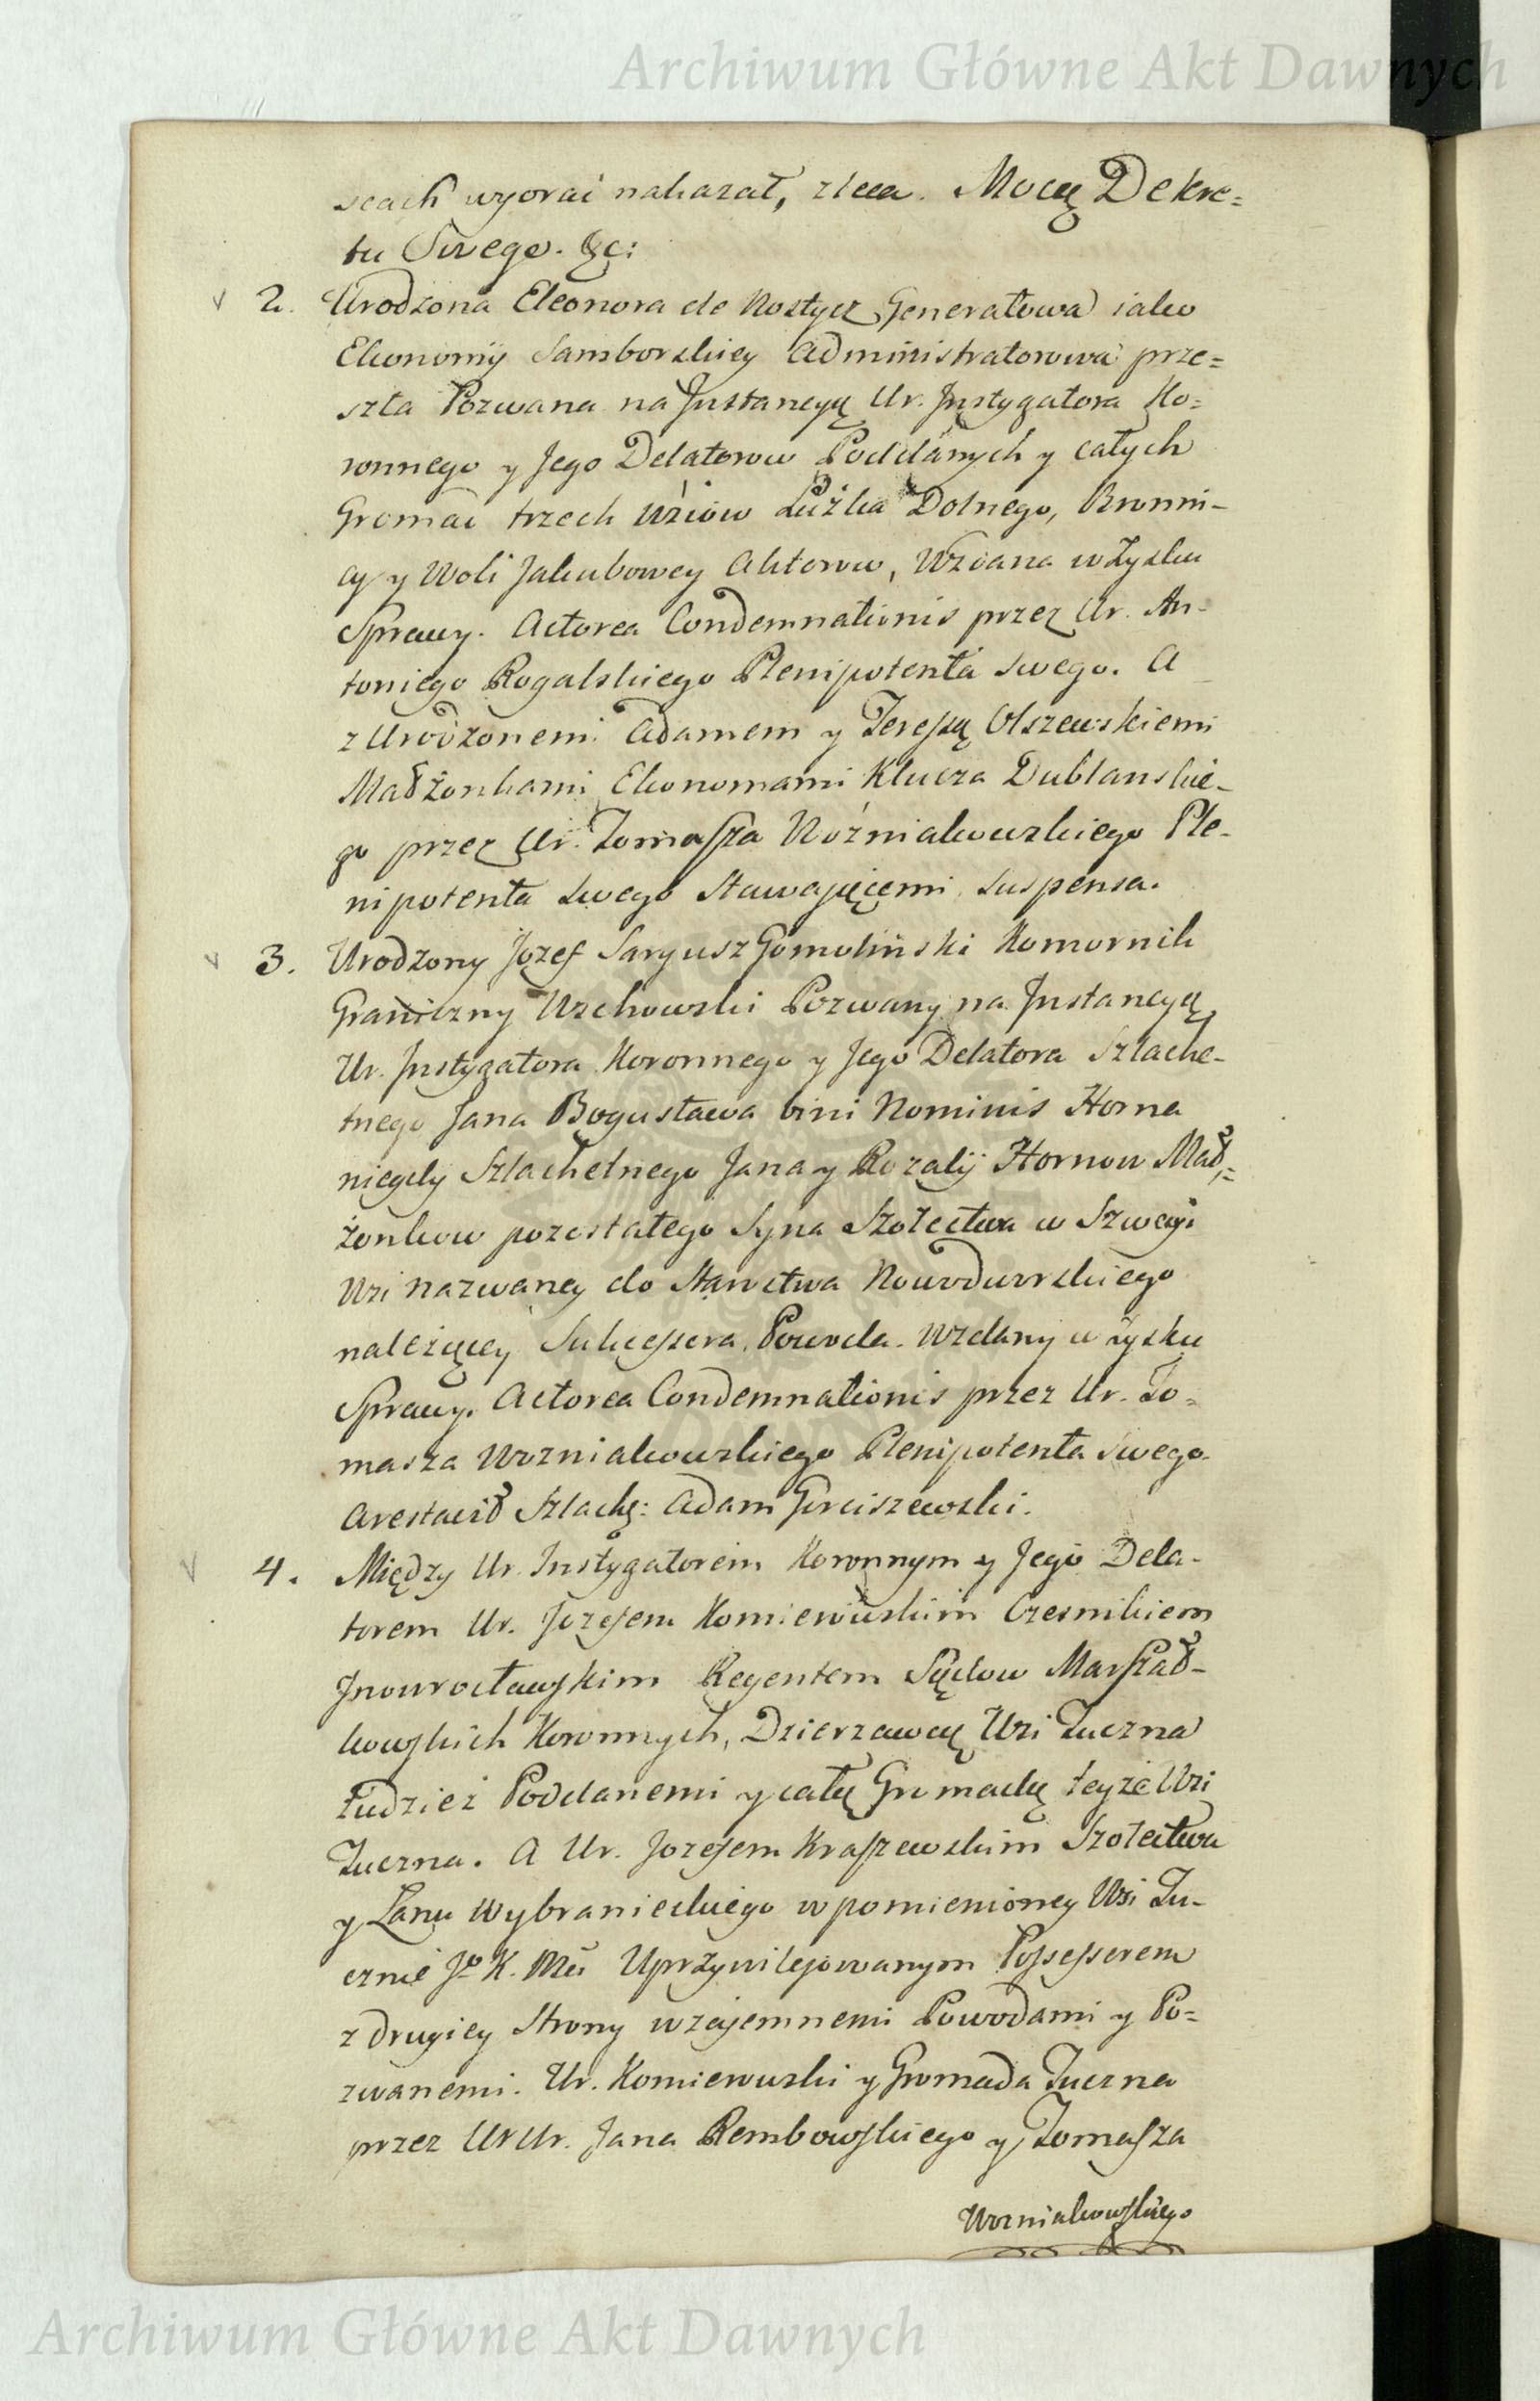 Archiwum Główne Akt Dawnych
scach wyorać nakazał, zleca. Mocą Dekre=
tu Swego. &c:
2. Urodzona Eleonora de Nostycz Generałowa iako
Ekonomij Samborskiey Administratorowa prze=
szła Pozwana na Jnstancyą Ur. Jnstygatora Ko=
ronnego y Jego Delatorow Poddanych y całych
Gromad trzech Wsiow Łużka Dolnego, Bronni-
cy y Woli Jakubowey Aktorow, Wzdana w Zysku
Sprawy. Actorea Condemnationis przez Ur. An-
toniego Rogalskiego Plenipotenta swego. A
z Urodzonemi Adamem y Teressą Olszewskiemi
Małżonkami Ekonomami Klucza Dublanskie-
go przez Ur. Tomasza Woźniakowskiego Ple-
nipotenta swego Stawaiącemi suspensa.
3. Urodzony Jozef Saryusz Gomoliński Komornik
Graniczny Wschowski Pozwany na Jnstancyą
Ur. Jnstygatora Koronnego y Jego Delatora Szlache-
tnego Jana Bogusława bini Nominis Horna
niegdy Szlachetnego Jana y Rozalij Hornow Mał=
żonkow pozostałego Syna Szołectwa w Szwegi
Wsi nazwaney do Starostwa Nowodworskiego
należącey Sukcessora Powoda. Wzdany w zysku
Sprawy. Actorea Condemnationis przez Ur. To=
masza Wozniakowskiego Plenipotenta swego.
Arestacił Szlachę: Adam Gruiszewski.
4. Między Ur. Instygatorem Koronnym y Jego Dela-
torem Ur. Jozefem Komierowskim Czesnikiem
Jnowrocławskim Regentem Sądow Marszał-
kowskich Koronnych, Dzierzawcą Wsi Tuczna
tudzież Poddanemi y całą Gromadą teyże Wsi
Tuczna. A Ur. Jozefem Kraszewskim Szołectwa
y Łanu Wybranieckiego w pomienioney Wsi Tu-
cznie Jo K. Mci Uprzywilejowanym Possessorem
z drugiey Strony wzajemnemi Powodami y Po=
zwanemi. Ur. Komierowski y Gromada Tuczna
przez UrUr. Jana Rembowskiego y Tomasza
Wozniakowskiego
Archiwum Główne Akt Dawnych